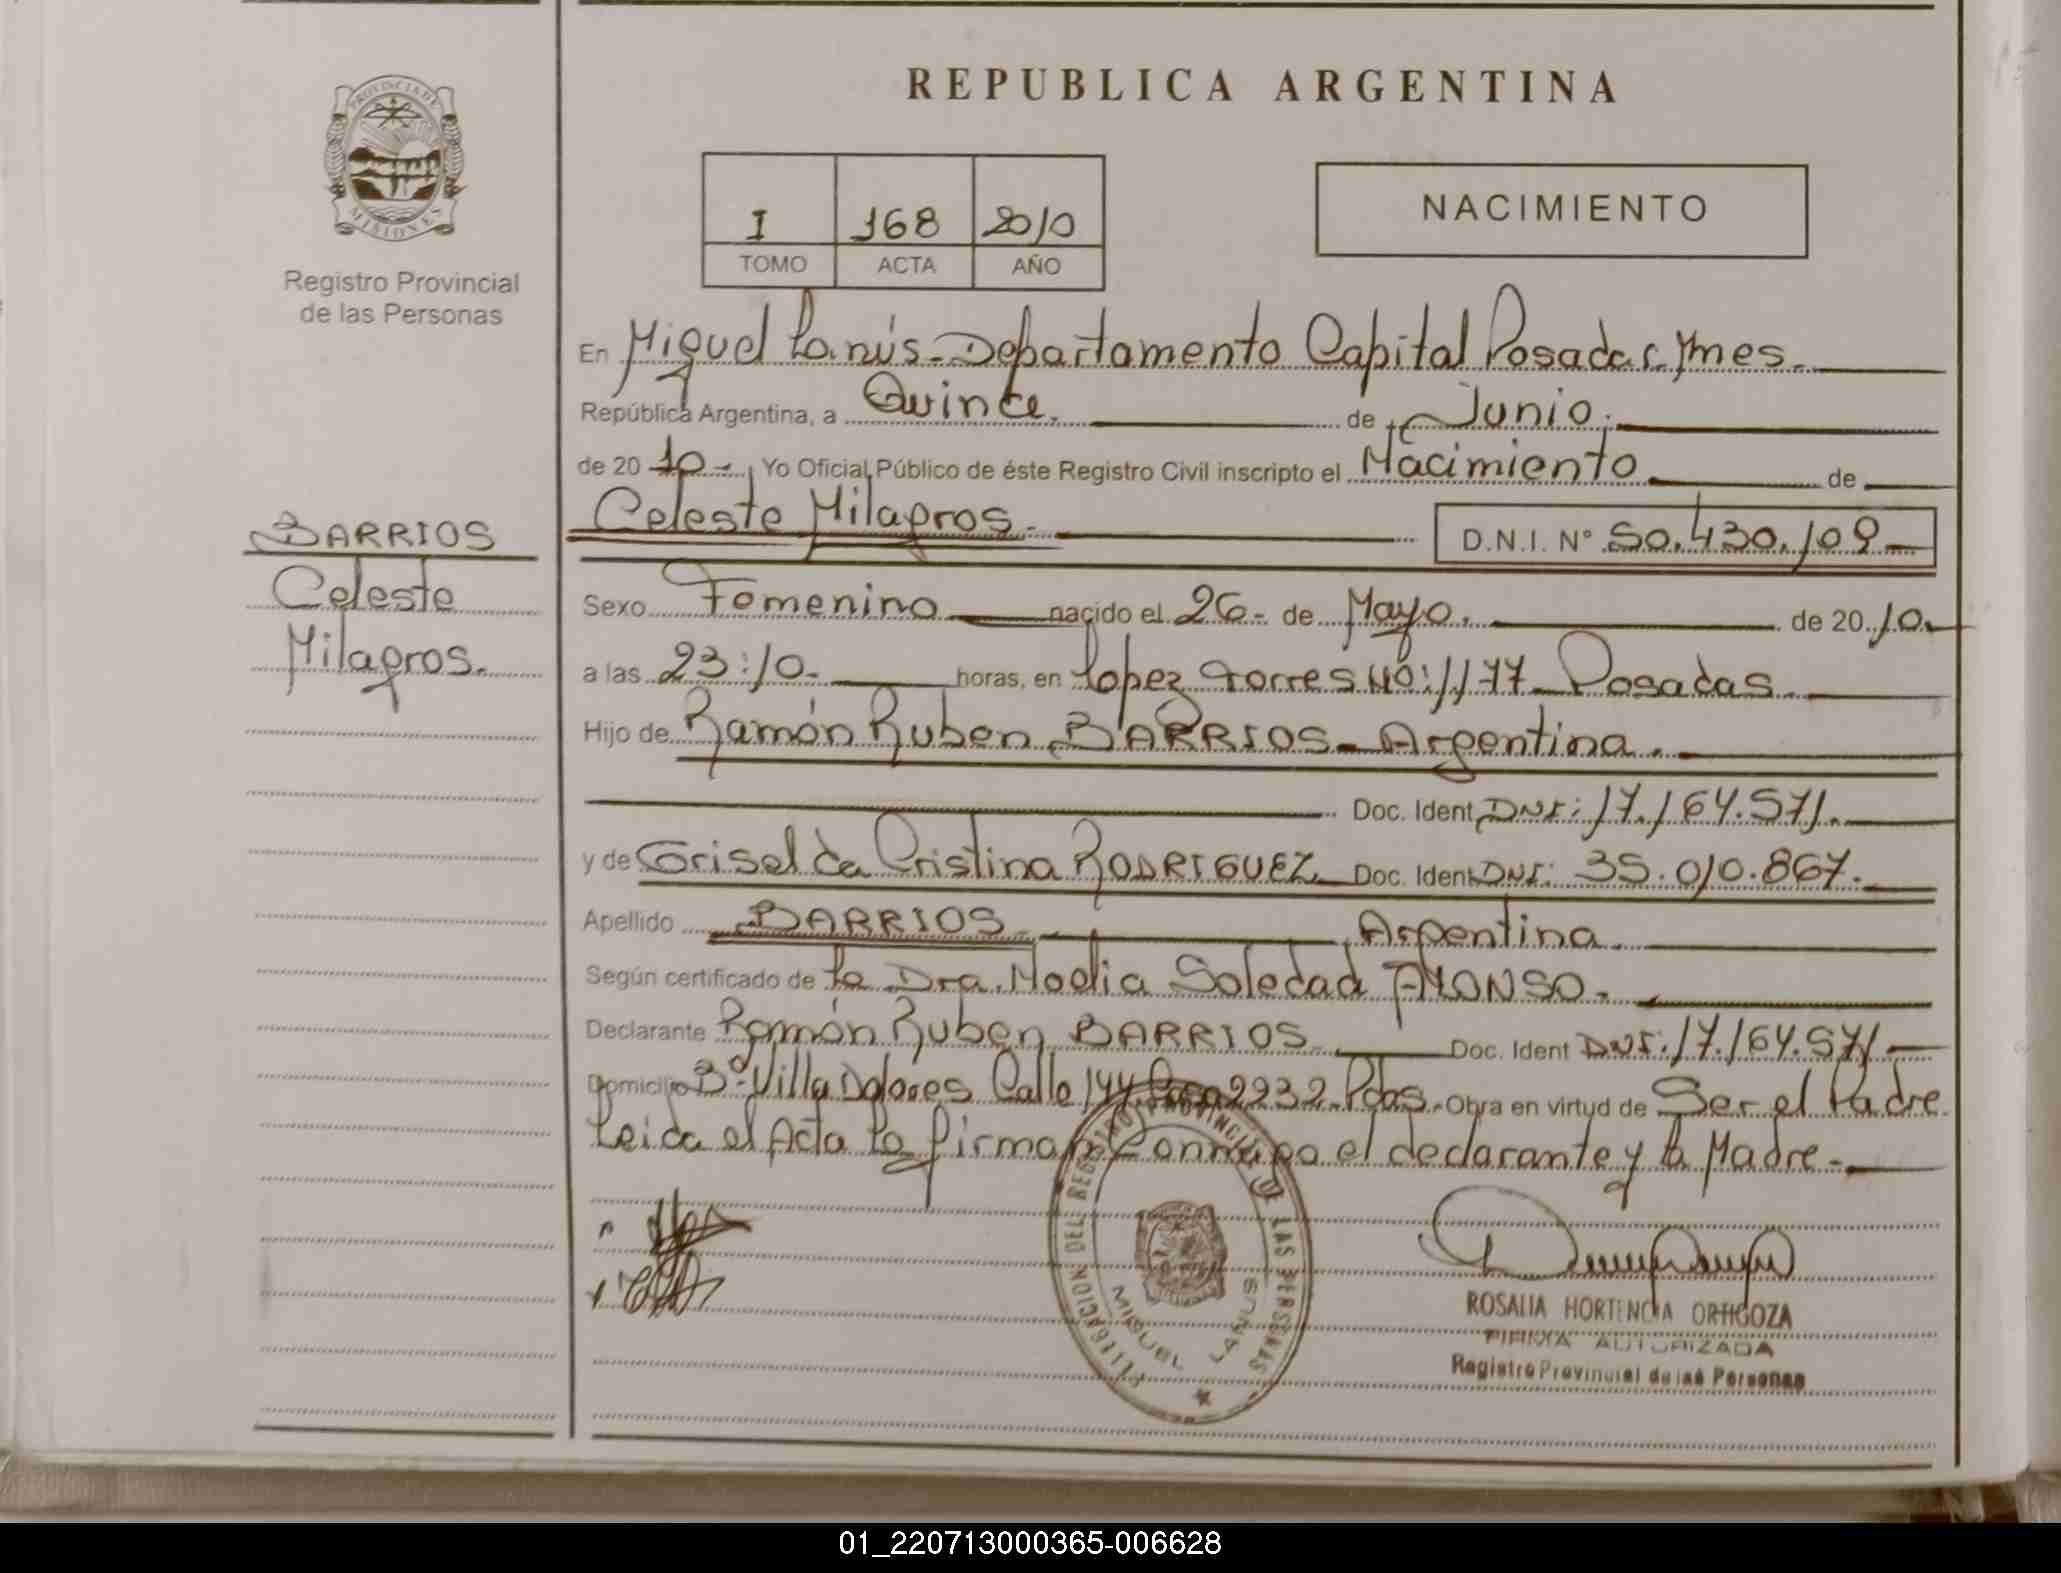 REPUBLICA ARGENTINA
PROVINCIA DE
MISIONES
Registro Provincial
de las Personas
I 168 2010
TOMO ACTA AÑO
NACIMIENTO
En Miguel Lanús - Departamento Capital Posadas. Mnes.
República Argentina, a Quince. de Junio.
de 20 10 - Yo Oficial Público de éste Registro Civil inscripto el Nacimiento de
Celeste Milagros. D.N.I. N° 50.430.109
BARRIOS
Celeste
Milagros.
Sexo Femenino nacido el 26 - de Mayo. de 20 10.
a las 23:10. horas, en Lopez Torres Nº: 1177 Posadas
Hijo de Ramón Ruben BARRIOS - Argentina.
Doc. Ident DNI: 17.164.571.
y de Griselda Cristina RODRIGUEZ Doc. Ident DNI: 35.010.867.
Apellido BARRIOS Argentina.
Según certificado de la Dra. Noelia Soledad ALONSO.
Declarante Ramón Ruben BARRIOS Doc. Ident DNI: 17.164.571
Domicilio Bº Villa Dolores Calle 144 2232 Pdas. Obra en virtud de Ser el Padre
Leida el Acta la firman Conmigo el declarante y la Madre.
DELEGACION DEL REGISTRO PROVINCIAL DE LAS PERSONAS
MIGUEL LANUS
ROSALIA HORTENCIA ORTIGOZA
FIRMA AUTORIZADA
Registro Provincial de las Personas
01_220713000365-006628